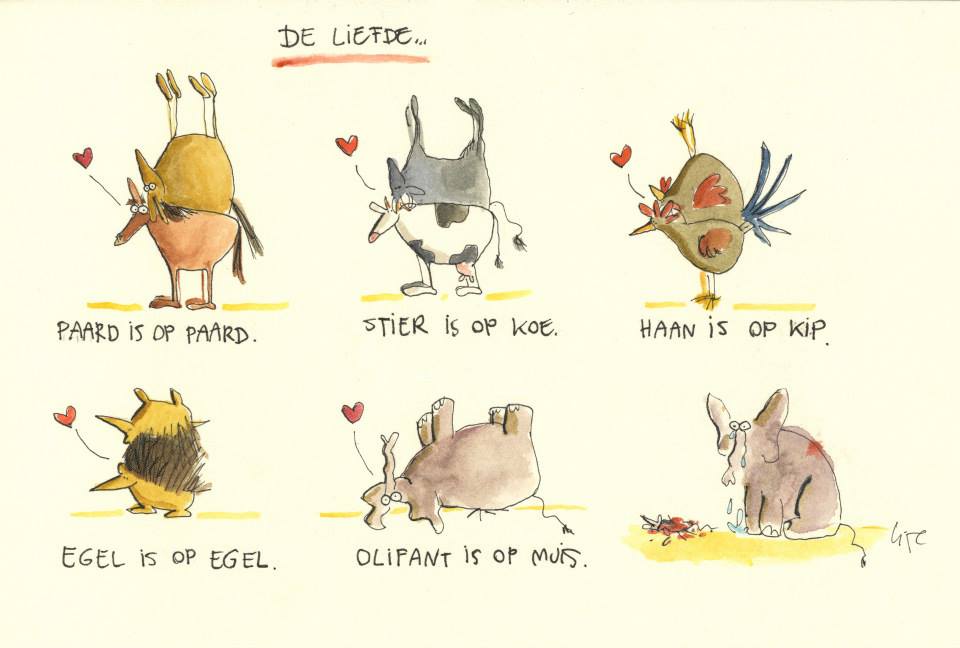 DE LIEFDE...
PAARD IS OP PAARD.
STIER IS OP KOE.
HAAN IS OP KIP.
EGEL IS OP EGEL.
OLIFANT IS OP MUIS.